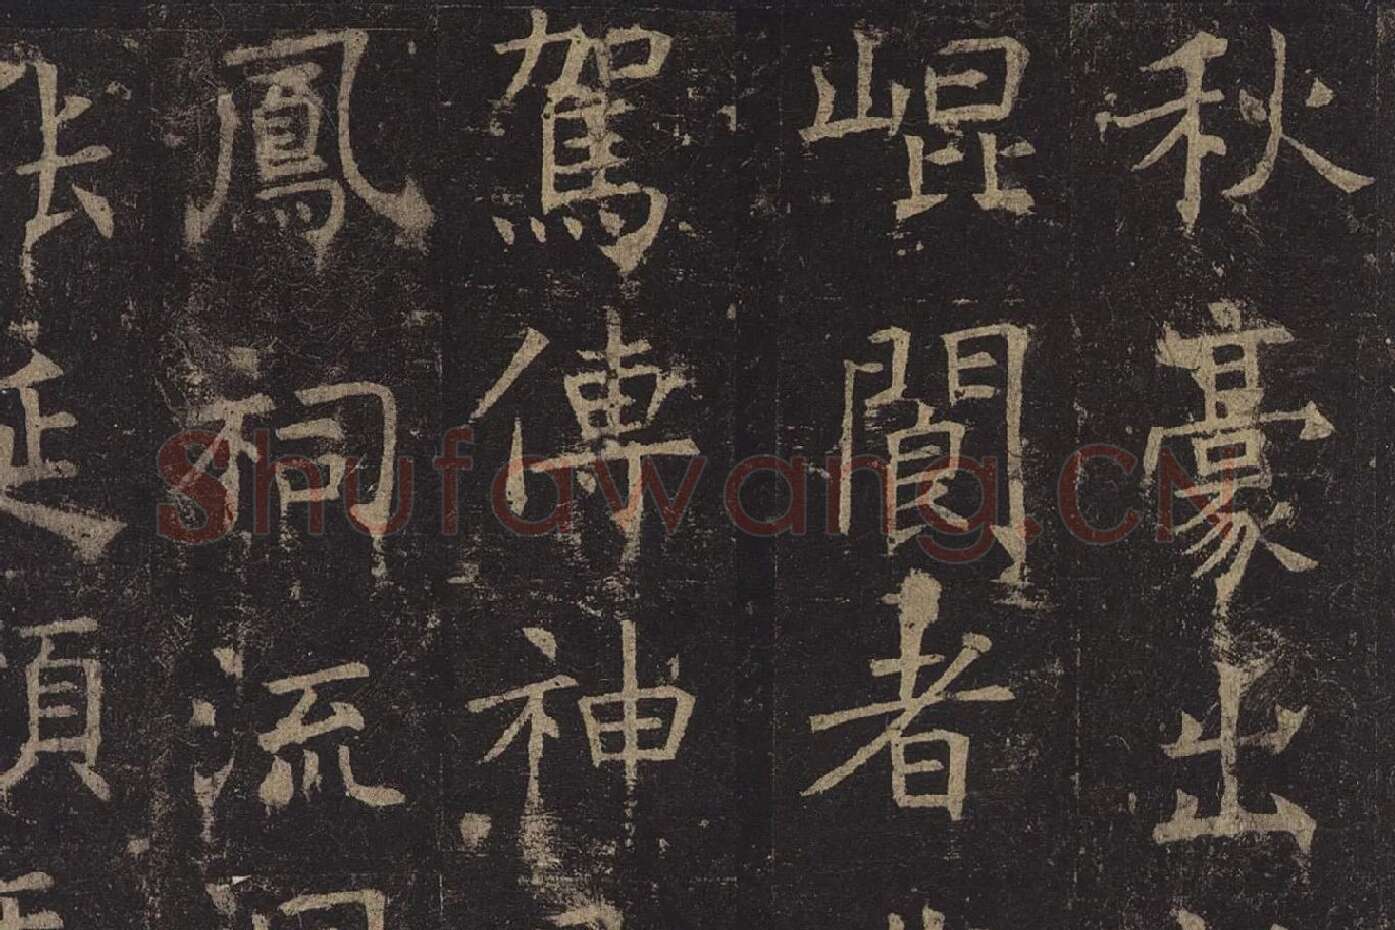 秋豪出
崐閬者
駕傳神
鳳祠流
延
Shufawang.CN